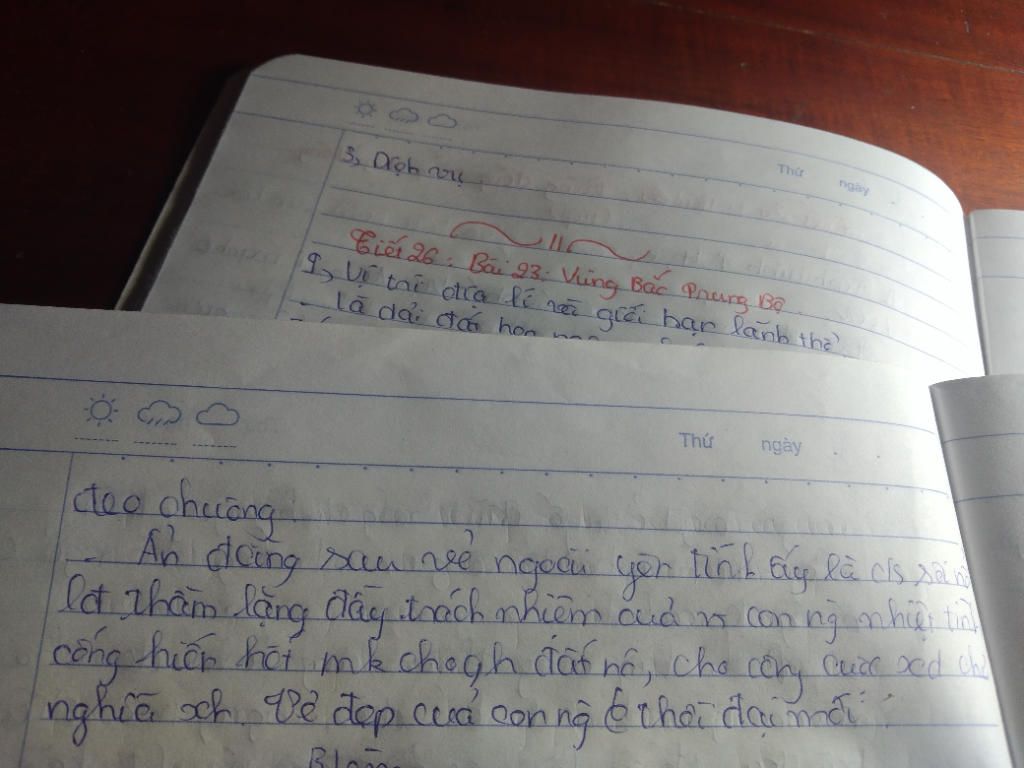 Thứ ngày
3, Dịch vụ
Tiết 26: Bài 23: Vùng Bắc Trung Bộ
1, Vị trí địa lí và giới hạn lãnh thổ
- Là dải đất hẹp
Thứ ngày
đẹo chương
- Ẩn đằng sau vẻ ngoài yên tĩnh ấy là c/s sôi nổi
lđ thầm lặng đầy trách nhiệm của n con ng nhiệt tình
cống hiến hết mk cho qh đất nc, cho công cuộc xd chủ
nghĩa xh. Vẻ đẹp của con ng ở thời đại mới.